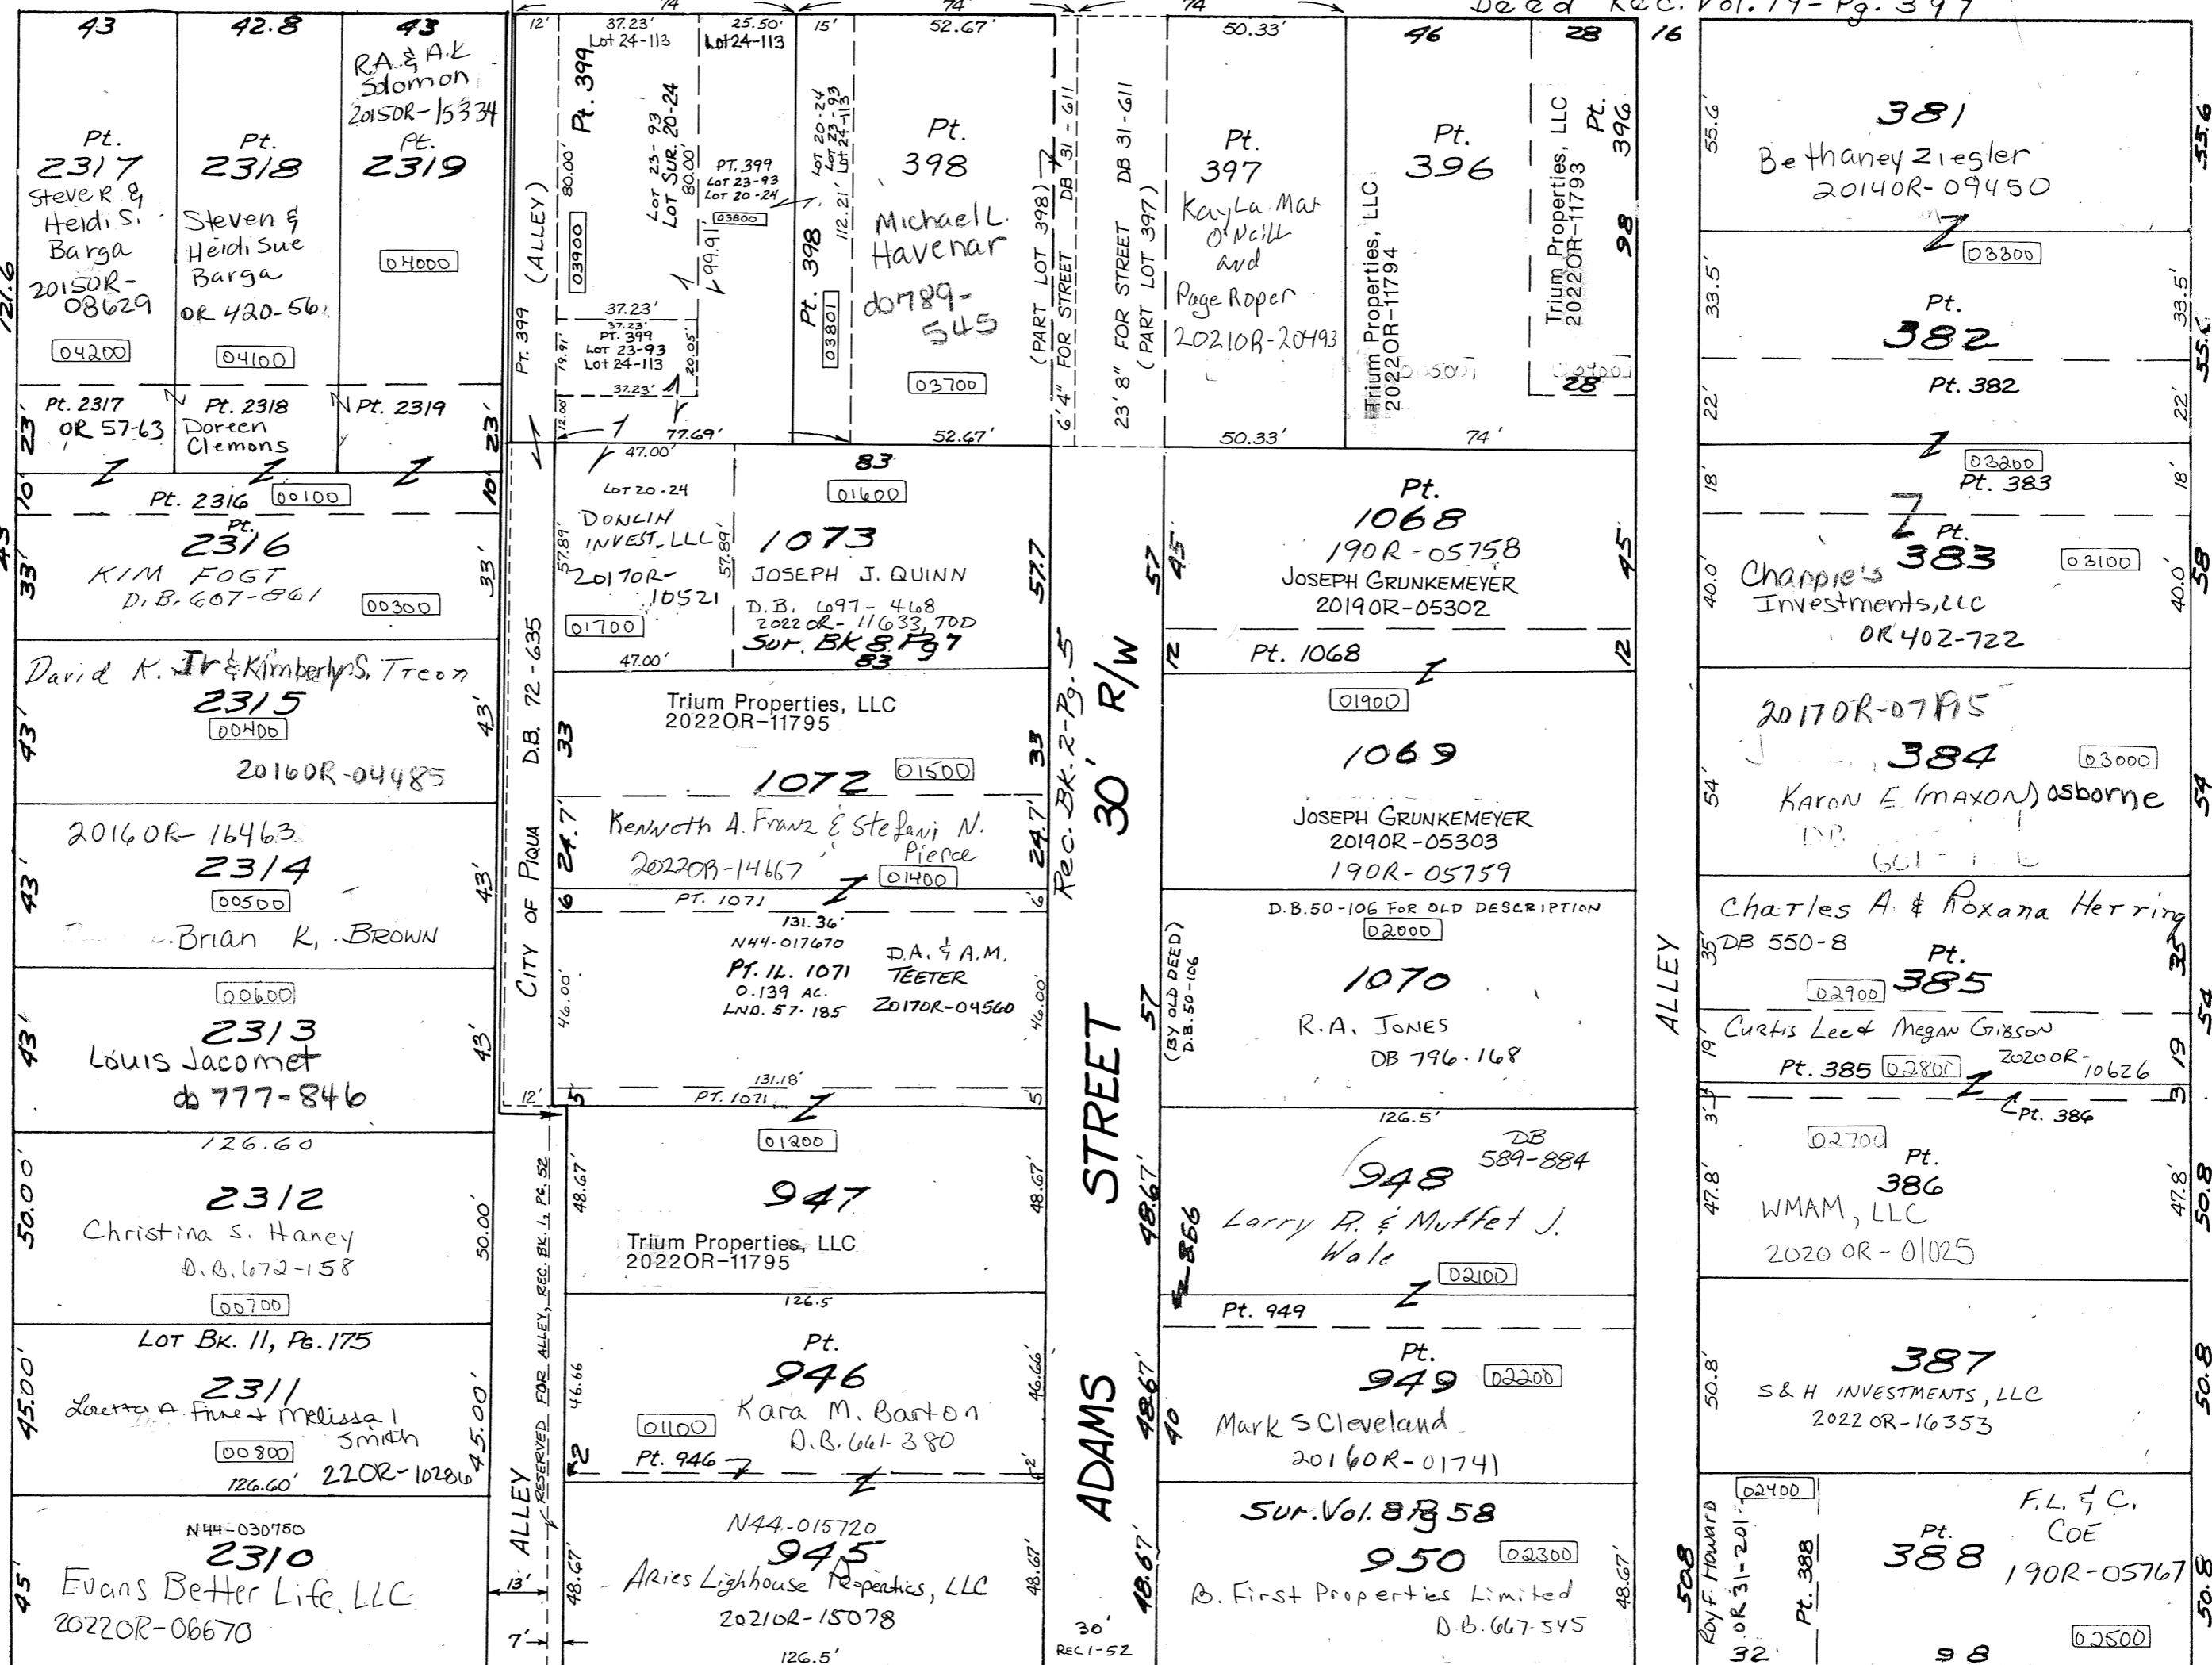 74
74
74
Deed Rec. Vol. 19-Pg. 397
43
42.8
43
R.A. & A.K
Solomon
2015OR-15334
Pt.
2317
Steve R. &
Heidi S.
Barga
2015OR-
08629
04200
Pt.
2318
Steven &
Heidi Sue
Barga
OR 420-56
04100
Pt.
2319
04000
121.6
Pt. 2317
OR 57-63
Pt. 2318
Doreen
Clemons
Pt. 2319
23'
23'
10'
Pt. 2316
00100
10'
43
33'
Pt.
2316
KIM FOGT
D.B. 607-861
00300
33'
David K. Jr & Kimberly S. Treon
2315
00400
2016OR-04485
43'
43'
2016OR-16463
2314
00500
Brian K. BROWN
43'
43'
00600
2313
Louis Jacomet
db 777-846
43'
43'
126.60
2312
Christina S. Haney
D.B. 672-158
00700
50.00'
50.00'
LOT BK. 11, PG. 175
2311
Loretta A. Fine & Melissa
Smith
00800
126.60'
22OR-10286
45.00'
45.00'
N44-030750
2310
Evans Better Life, LLC
2022OR-06670
45'
12'
PT. 399 (ALLEY)
CITY OF PIQUA D.B. 72-635
12'
ALLEY
RESERVED FOR ALLEY, REC. BK. 1, PG. 52
13'
7'
37.23'
Lot 24-113
25.50'
Lot 24-113
Pt. 399
80.00'
03900
LOT 23-93
LOT SUR. 20-24
80.00'
PT. 399
LOT 23-93
LOT 20-24
03800
99.91'
37.23'
37.23'
PT. 399
LOT 23-93
Lot 24-113
37.23'
19.91'
20.05'
12.00'
77.69'
15'
LOT 20-24
LOT 23-93
Lot 24-113
112.21'
Pt. 398
03801
52.67'
Pt.
398
Michael L.
Havenar
db789-
545
03700
52.67'
(PART LOT 398)
6'4" FOR STREET DB 31-611
23'8" FOR STREET DB 31-611
(PART LOT 397)
50.33'
Pt.
397
Kayla Mar
O'Neill
and
Page Roper
2021OR-20493
50.33'
46
Pt.
396
Trium Properties, LLC
2022OR-11794
74'
28
Trium Properties, LLC
2022OR-11793
Pt. 396
98
28
16
47.00'
LOT 20-24
DONLIN
INVEST. LLC
2017OR-
10521
01700
57.89'
57.89'
47.00'
83
01600
1073
JOSEPH J. QUINN
D.B. 697-468
2022OR-11633, TOD
Sur. BK 8 Pg 7
83
57.7
Trium Properties, LLC
2022OR-11795
1072
01500
33
33
Kenneth A. Franz & Stefani N.
Pierce
2022OR-14667
01400
24.7'
24.7'
6
PT. 1071
6'
131.36'
N44-017670
PT. IL. 1071
0.139 AC.
LND. 57-185
D.A. & A.M.
TEETER
2017OR-04560
46.00'
46.00'
131.18'
5'
PT. 1071
5'
01200
947
Trium Properties, LLC
2022OR-11795
48.67'
48.67'
126.5
Pt.
946
Kara M. Barton
01100
D.B. 661-380
46.66
46.66'
2
Pt. 946
2'
N44-015720
945
Aries Lighhouse Properties, LLC
2021OR-15078
48.67'
48.67'
126.5'
Rec. BK. 2-Pg. 5
30' R/W
ADAMS STREET
30'
REC 1-52
57
57
48.67'
48.67'
48.67'
Pt.
1068
19OR-05758
JOSEPH GRUNKEMEYER
2019OR-05302
45'
45'
12
Pt. 1068
12
01900
1069
JOSEPH GRUNKEMEYER
2019OR-05303
19OR-05759
D.B. 50-106 FOR OLD DESCRIPTION
02000
1070
R.A. JONES
DB 796-168
(BY OLD DEED)
D.B. 50-106
126.5'
DB
589-884
948
Larry D. & Muffet J.
Wale
02100
Pt. 949
Pt.
949
02200
Mark S Cleveland
2016OR-01741
40
Sur. Vol. 8 Pg 58
950
02300
B. First Properties Limited
D.B. 667-545
48.67'
ALLEY
381
Bethaney Ziegler
2014OR-09450
55.6'
55.6
03300
Pt.
382
33.5'
33.5'
Pt. 382
22'
22'
03200
Pt. 383
18'
18'
Pt.
383
03100
Chappie's
Investments, LLC
OR 402-722
40.0'
40.0'
58
2017OR-07195
384
03000
Karon E (MAXON) Osborne
54'
54
Charles A. & Roxana Herring
DB 550-8
Pt.
385
02900
35'
35
Curtis Lee & Megan Gibson
Pt. 385
02800
2020OR-
10626
19'
19
54
3'
3
Pt. 386
02700
Pt.
386
WMAM, LLC
2020 OR-01025
47.8'
47.8'
50.8
387
S & H INVESTMENTS, LLC
2022OR-16353
50.8'
50.8
02400
Roy F. Howard
OR 31-201
Pt. 388
32
508
Pt.
388
F.L. & C.
COE
19OR-05767
02500
98
50.8